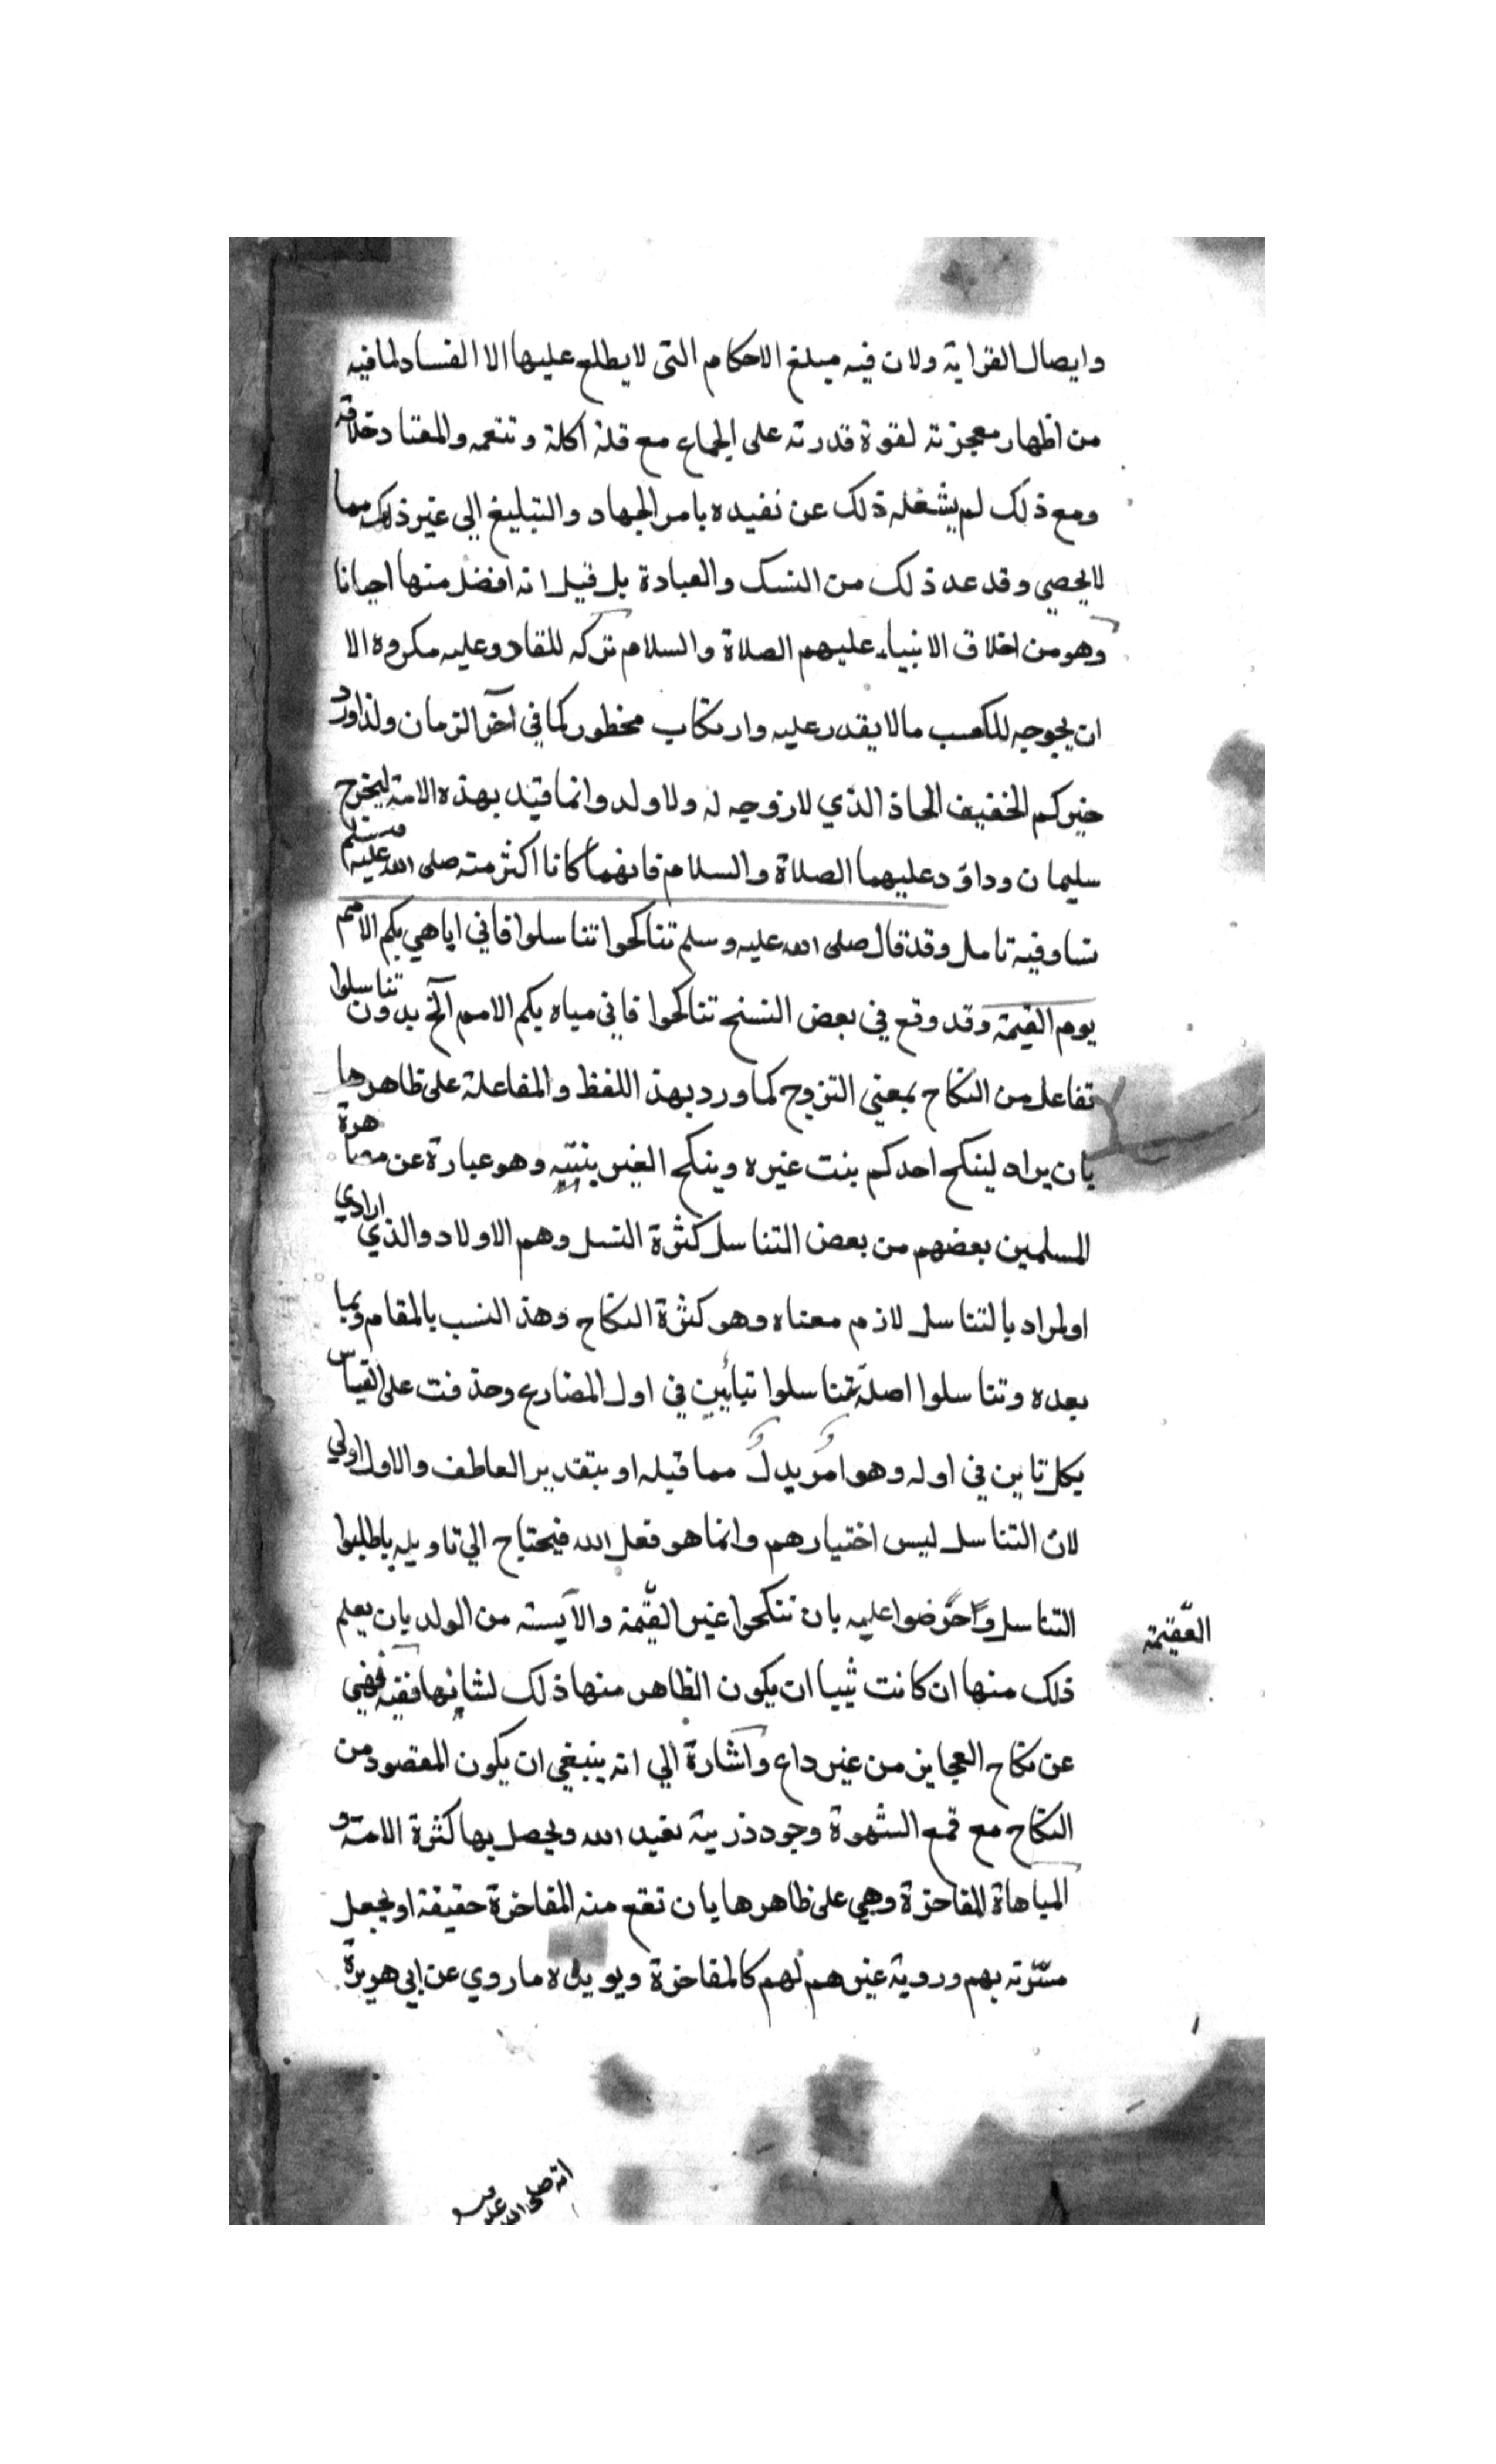 وايصال القراية ولان فيه مبلغ الاحكام التى لايطلع عليها الا الفساد لمافيه
من اظهار معجزته لقوة قدرته على الجماع مع قلة اكله وتنعمه والمعتاد خلافه
ومع ذلك لم يشغله ذلك عن نفيده بامر الجهاد والتبليغ الي غير ذلك مما
لايحصي وقد عد ذلك من النسك والعبادة بل قيل انه افضل منها احيانا
وهو من اخلاق الانبياء عليهم الصلاة والسلام تركه للقادر عليه مكروه الا
ان يحوجه للكسب مالا يقدر عليه وارتكاب محظور كما في آخر الزمان ولذا ورد
خيركم الخفيف الحاذ الذي لا زوجه له ولا ولد وانما قيد بهذه الامة ليخرج
سليمان وداود عليهما الصلاة والسلام فانهما كانا اكثر منه صلى الله عليه وسلم
نسا وفيه تامل وقد قال صلى الله عليه وسلم تناكحوا تناسلوا فاني اباهي بكم الامم
يوم القيمة وقد وقع في بعض النسخ تناكحوا فاني مباه بكم الامم آلخ بدون تناسلوا
تفاعل من النكاح بمعني التزوج كما ورد بهذ اللفظ والمفاعلة على ظاهرها
بان يراد لينكح احدكم بنت غيره وينكح الغير بنته وهو عبارة عن مصاهرة
المسلمين بعضهم من بعض التناسل كثرة النسل وهم الاولاد والذي ارادي
اولمراد بالتناسل لازم معناه وهو كثرة النكاح وهذ النسب بالمقام وبما
بعده وتناسلوا اصله تتناسلوا بتايين في اول المضارع وحذفت على القياس
بكل تاين في اوله وهو امر بدل مما قبله او بتقدير العاطف والاول اولي
لان التناسل ليس اختيارهم وانما هو فعل الله فيحتاج الي تاويله باطلبوا
التناسل واحرضوا عليه بان تنكحوا غير القيمة والآيسته من الولد بان يعلم
العقيمة
ذلك منها ان كانت ثيبا ان يكون الظاهر منها ذلك لشانها ففيه نهي
عن نكاح العجايز من غير داع واشارة الي انه ينبغي ان يكون المقصود من
النكاح مع قمع الشهوة وجود ذرية تعبد الله ويحصل بها كثرة الامة و
المباهاة المفاخرة وهي على ظاهرها بان تقع منه المفاخرة حقيقة او يجعل
مسرته بهم وروية غيرهم لهم كالمفاخرة ويويده ماروي عن ابي هريرة
انه صلى الله عليه وسلم